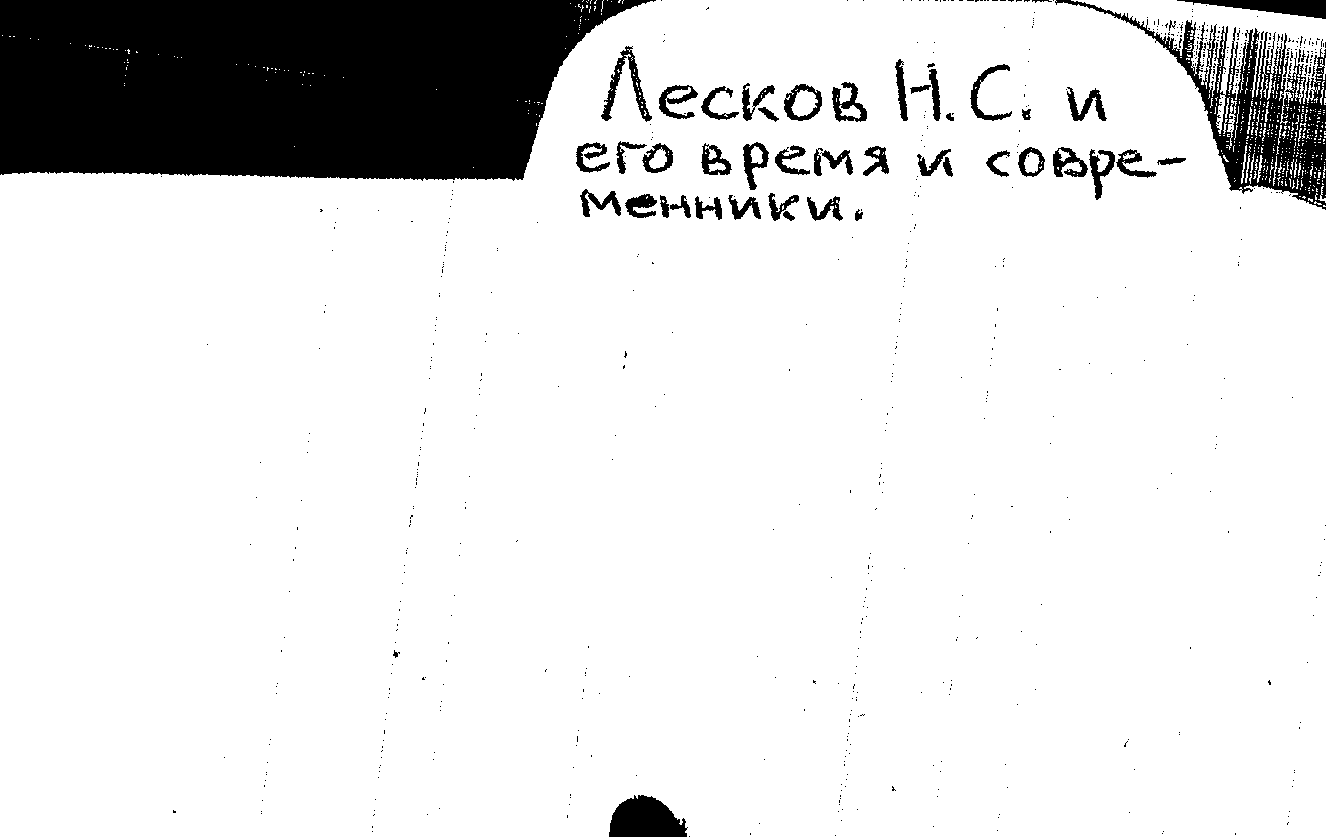 Лесков Н.С. и
его время и совре-
менники.